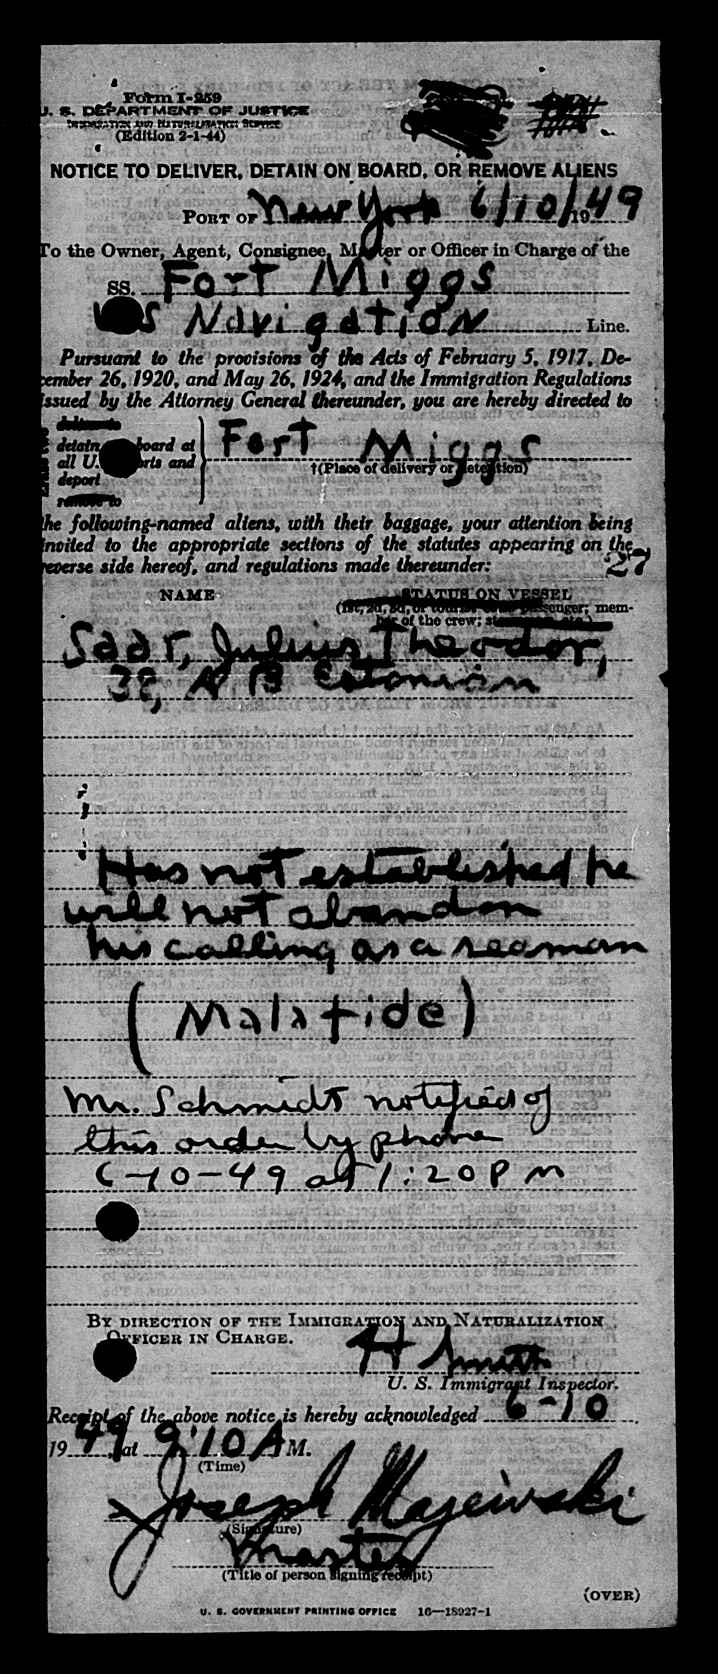 Form I-259
U. S. DEPARTMENT OF JUSTICE
IMMIGRATION AND NATURALIZATION SERVICE
(Edition 2-1-44)
NOTICE TO DELIVER, DETAIN ON BOARD, OR REMOVE ALIENS
PORT OF New York 6/10/1949
To the Owner, Agent, Consignee, Master or Officer in Charge of the
SS. Fort Miggs
S Navigation Line.
Pursuant to the provisions of the Acts of February 5, 1917, De-
cember 26, 1920, and May 26, 1924, and the Immigration Regulations
issued by the Attorney General thereunder, you are hereby directed to
detain board at
all U. ports and
deport
remove to
Fort Miggs
†(Place of delivery or detention)
the following-named aliens, with their baggage, your attention being
invited to the appropriate sections of the statutes appearing on the
reverse side hereof, and regulations made thereunder:
27
NAME STATUS ON VESSEL
(1st, 2d, 3d, or passenger; mem-
ber of the crew;
Saar, Julius Theodor,
38, A B Estonian
Has not established he
will not abandon
his calling as a seaman
(Malafide)
Mr. Schmidt notified of
this order by phone
6-10-49 at 1:20 P M
BY DIRECTION OF THE IMMIGRATION AND NATURALIZATION
OFFICER IN CHARGE.
H Smith
U. S. Immigrant Inspector.
Receipt of the above notice is hereby acknowledged 6-10
1949, at 9:10 A M.
(Time)
Joseph Majewski
(Signature)
Master
(Title of person signing receipt)
(OVER)
U. S. GOVERNMENT PRINTING OFFICE 16—18927-1